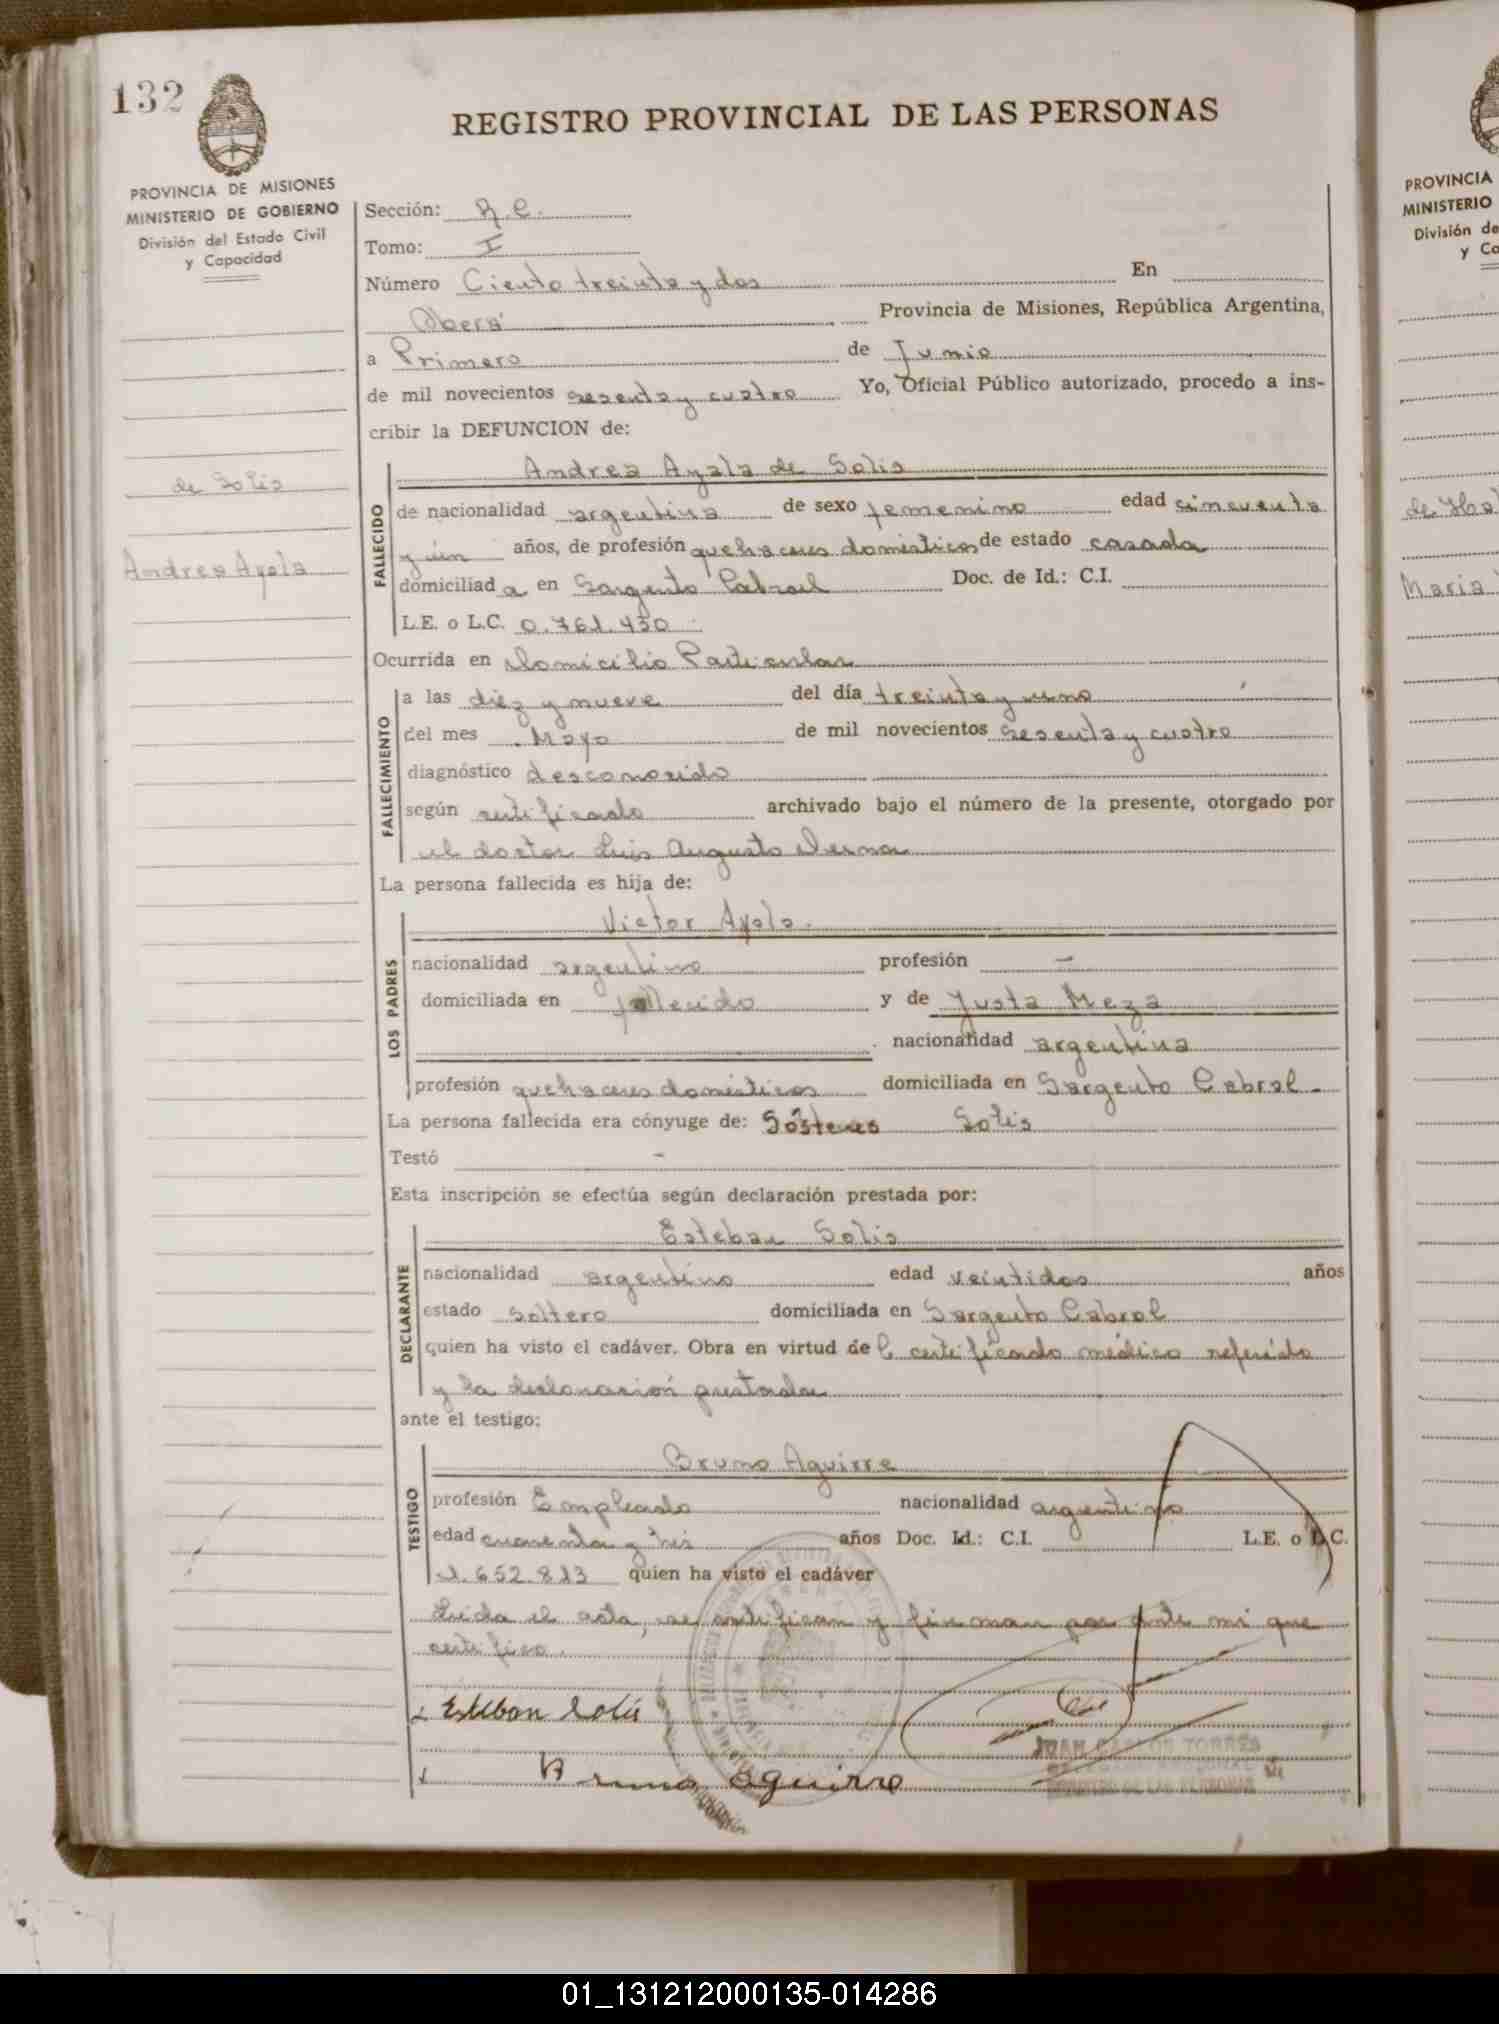 132
REGISTRO PROVINCIAL DE LAS PERSONAS
PROVINCIA DE MISIONES
MINISTERIO DE GOBIERNO
División del Estado Civil
y Capacidad
Sección: R. C.
Tomo: I
Número Ciento treinta y dos En
Oberá Provincia de Misiones, República Argentina,
a Primero de Junio
de mil novecientos sesenta y cuatro Yo, Oficial Público autorizado, procedo a ins-
cribir la DEFUNCION de:
de Solis
Andrea Ayala
FALLECIDO
Andrea Ayala de Solis
de nacionalidad argentina de sexo femenino edad sincuenta
y un años, de profesión quehaceres domésticos de estado casada
domiciliad a en Sargento Cabral Doc. de Id.: C.I.
L.E. o L.C. 0.761.430
Ocurrida en Domicilio Particular
FALLECIMIENTO
a las diez y nueve del día treinta y uno
del mes Mayo de mil novecientos sesenta y cuatro
diagnóstico desconocido
según certificado archivado bajo el número de la presente, otorgado por
el doctor Luis Augusto
La persona fallecida es hija de:
LOS PADRES
Victor Ayala.
nacionalidad argentino profesión —
domiciliada en fallecido y de Justa Meza
nacionalidad argentina
profesión quehaceres domésticos domiciliada en Sargento Cabral -
La persona fallecida era cónyuge de: Sóstenes Solis
Testó -
Esta inscripción se efectúa según declaración prestada por:
DECLARANTE
Esteban Solis
nacionalidad argentino edad veintidos años
estado soltero domiciliada en Sargento Cabral
quien ha visto el cadáver. Obra en virtud de l certificado médico referido
y la declaración prestada
ante el testigo:
TESTIGO
Bruno Aguirre
profesión Empleado nacionalidad argentino
edad cuarenta y años Doc. Id.: C.I. L.E. o L.C.
652.813 quien ha visto el cadáver
Leida el acta, se ratifican y firman por ante mi que
certifico.
Esteban Solis
Bruno Aguirre
JUAN CARLOS TORRES
REGISTRO DE LAS PERSONAS
PROVINCIA
MINISTERIO
División de
y Ca
Maria
01_131212000135-014286